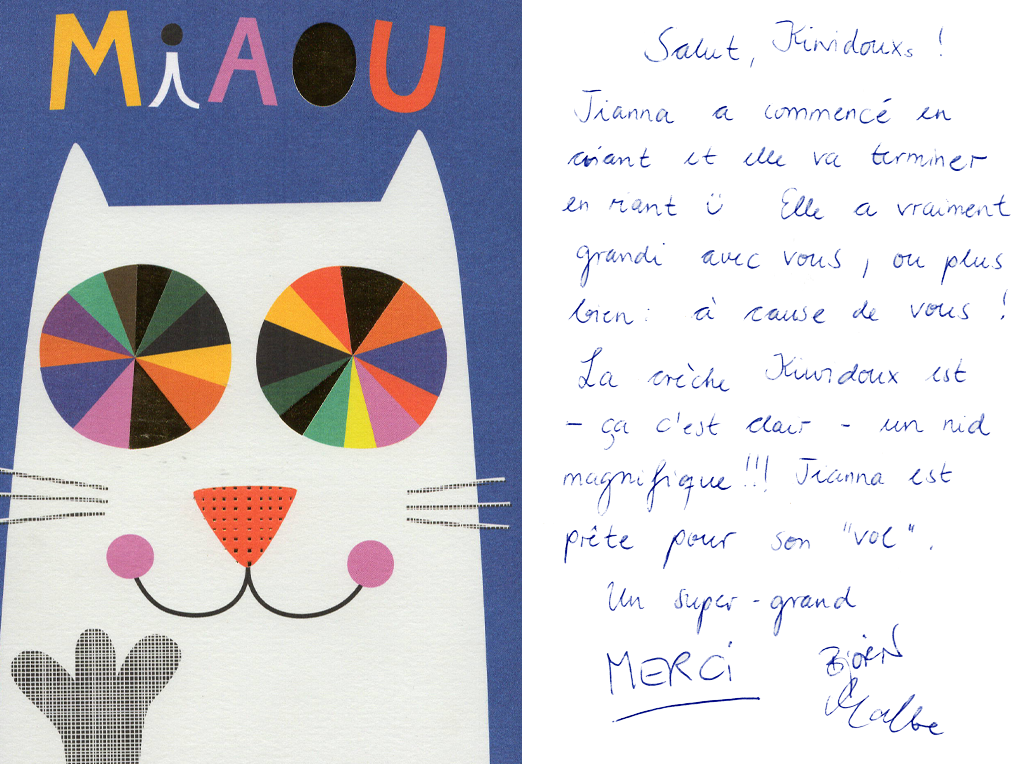 MiAOU
Salut, Kiwidoux !
Tianna a commencé en
criant et elle va terminer
en riant ü Elle a vraiment
grandi avec vous, ou plus
bien : à cause de vous !
La crèche Kiwidoux est
- ça c'est clair - un nid
magnifique !!! Tianna est
prête pour son "vol".
Un super-grand
MERCi
Björn